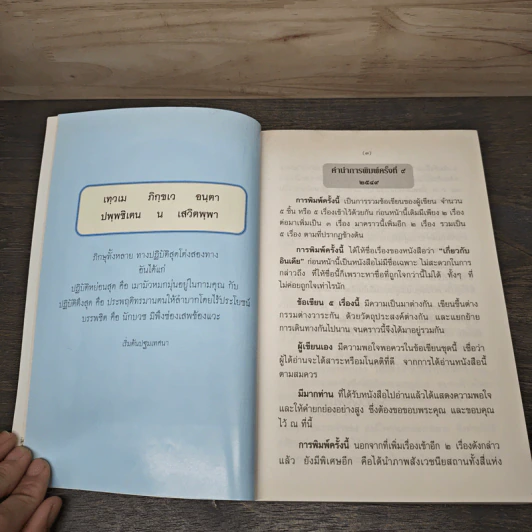 เทฺวเม ภิกฺขเว อนฺตา
ปพฺพชิเตน น เสวิตพฺพา
ภิกษุทั้งหลาย ทางปฏิบัติสุดโต่งสองทาง
อันได้แก่
ปฏิบัติหย่อนสุด คือ เมามัวหมกมุ่นอยู่ในกามคุณ กับ
ปฏิบัติตึงสุด คือ ประพฤติทรมานตนให้ลำบากโดยไร้ประโยชน์
บรรพชิต คือ นักบวช มิพึงข้องเสพข้องแวะ
เริ่มต้นปฐมเทศนา
คำนำการพิมพ์ครั้งที่ ๙
๒๕๔๙
การพิมพ์ครั้งนี้ เป็นการรวมข้อเขียนของผู้เขียน จำนวน
๕ ชิ้น หรือ ๕ เรื่องเข้าไว้ด้วยกัน ก่อนหน้านี้เดิมมีเพียง ๒ เรื่อง
ต่อมาเพิ่มเป็น ๓ เรื่อง มาคราวนี้เพิ่มอีก ๒ เรื่อง รวมเป็น
๕ เรื่อง ตามที่ปรากฏข้างต้น
การพิมพ์ครั้งนี้ ได้ให้ชื่อเรื่องของหนังสือว่า "เกี่ยวกับ
อินเดีย" ก่อนหน้านี้เป็นหนังสือไม่มีชื่อเฉพาะ ไม่สะดวกในการ
กล่าวถึง ที่ให้ชื่อนี้ก็เพราะหาชื่อที่ถูกใจกว่านี้ไม่ได้ ทั้งๆ ที่
ไม่ค่อยถูกใจเท่าไรนัก
ข้อเขียน ๕ เรื่องนี้ มีความเป็นมาต่างกัน เขียนขึ้นต่าง
กรรมต่างวาระกัน ด้วยวัตถุประสงค์ต่างกัน และแยกย้าย
การเดินทางกันไปนาน จนคราวนี้จึงได้มาอยู่รวมกัน
ผู้เขียนเอง มีความพอใจพอควรในข้อเขียนชุดนี้ เชื่อว่า
ผู้ได้อ่านจะได้สาระหรือมโนคติที่ดี จากการได้อ่านหนังสือนี้
ตามสมควร
มีมากท่าน ที่ได้รับหนังสือไปอ่านแล้วได้แสดงความพอใจ
และให้คำยกย่องอย่างสูง ซึ่งต้องขอขอบพระคุณ และขอบคุณ
ไว้ ณ ที่นี้
การพิมพ์ครั้งนี้ นอกจากที่เพิ่มเรื่องเข้าอีก ๒ เรื่องดังกล่าว
แล้ว ยังมีพิเศษอีก คือได้นำภาพสังเวชนียสถานทั้งสี่แห่ง